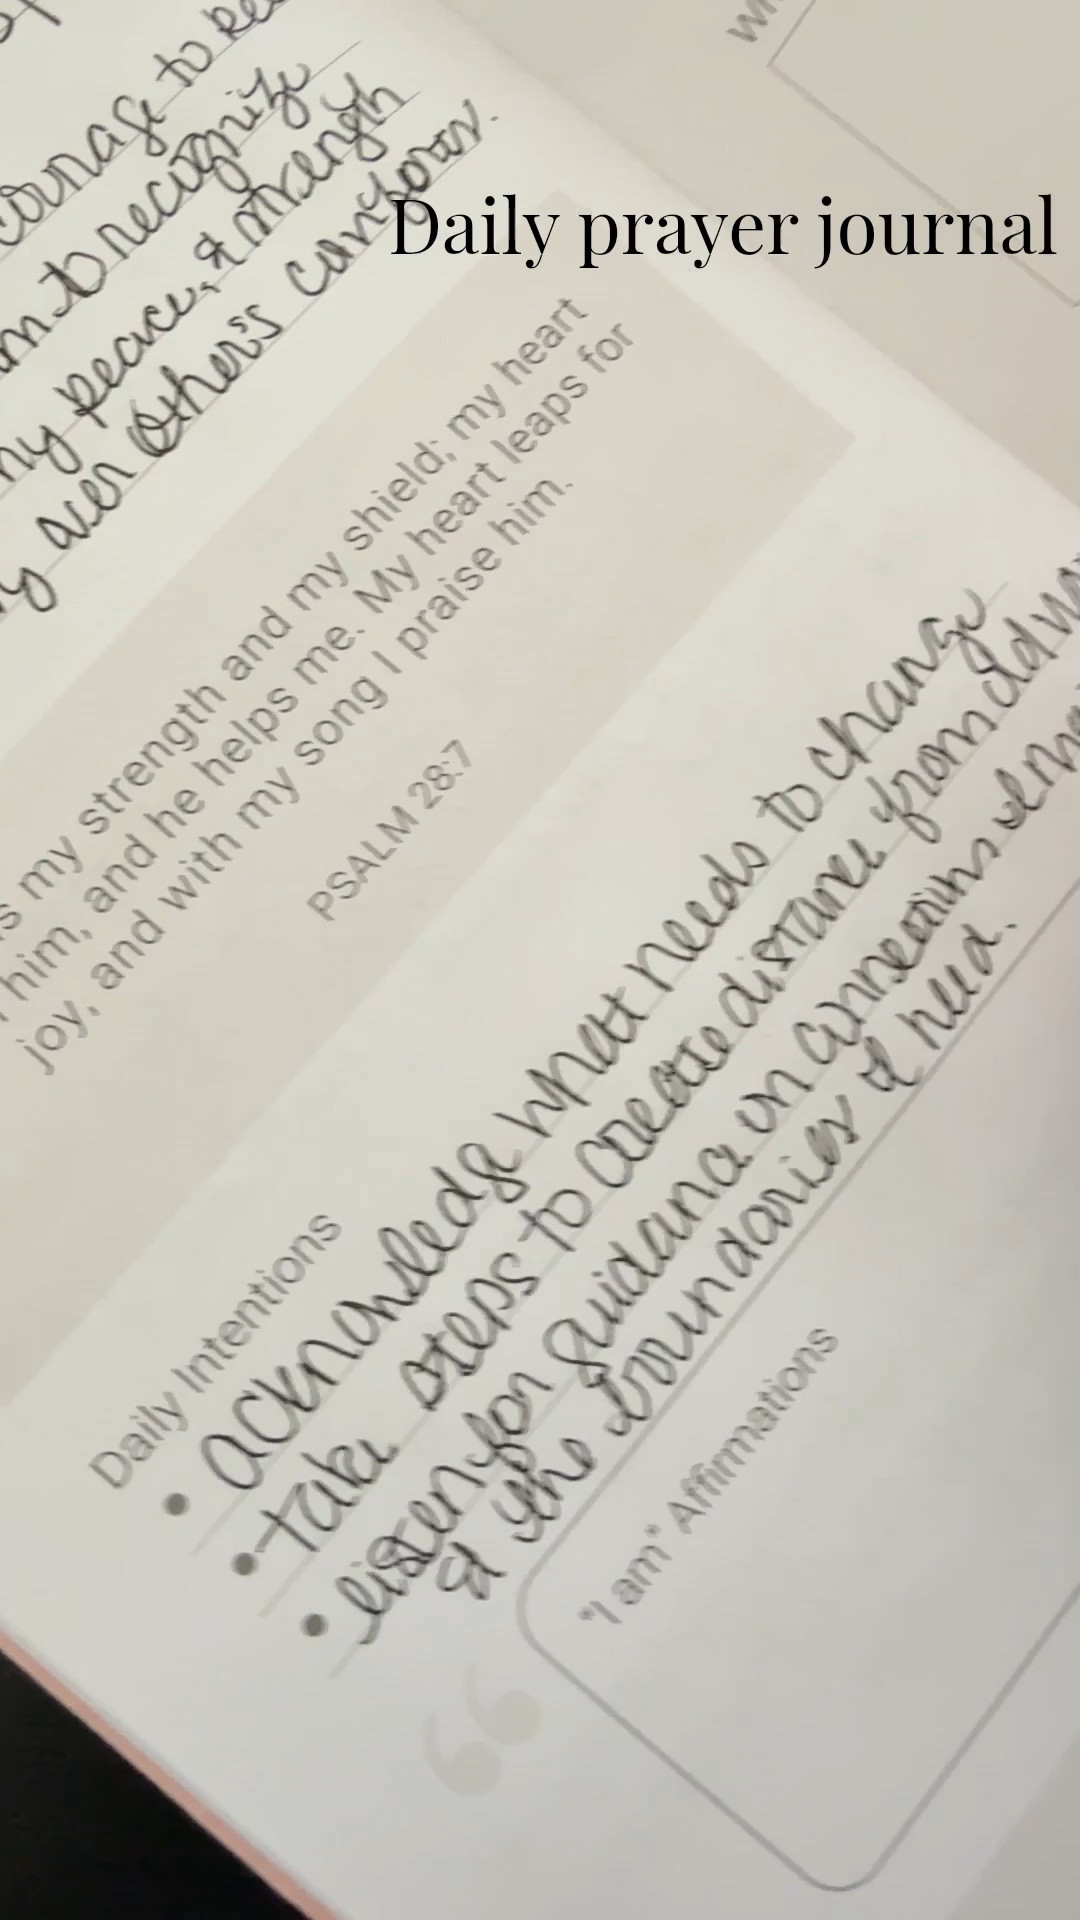 Daily prayer journal
courage to
to recognize
my peace, & strength
over other's comfort.
my strength and my shield; my heart
him, and he helps me. My heart leaps for
joy, and with my song I praise him.
PSALM 28:7
Daily Intentions
• acknowledge what needs to change
• take steps to create distance from old
• listen for guidance on connections
& the boundaries I need.
"I am" Affirmations